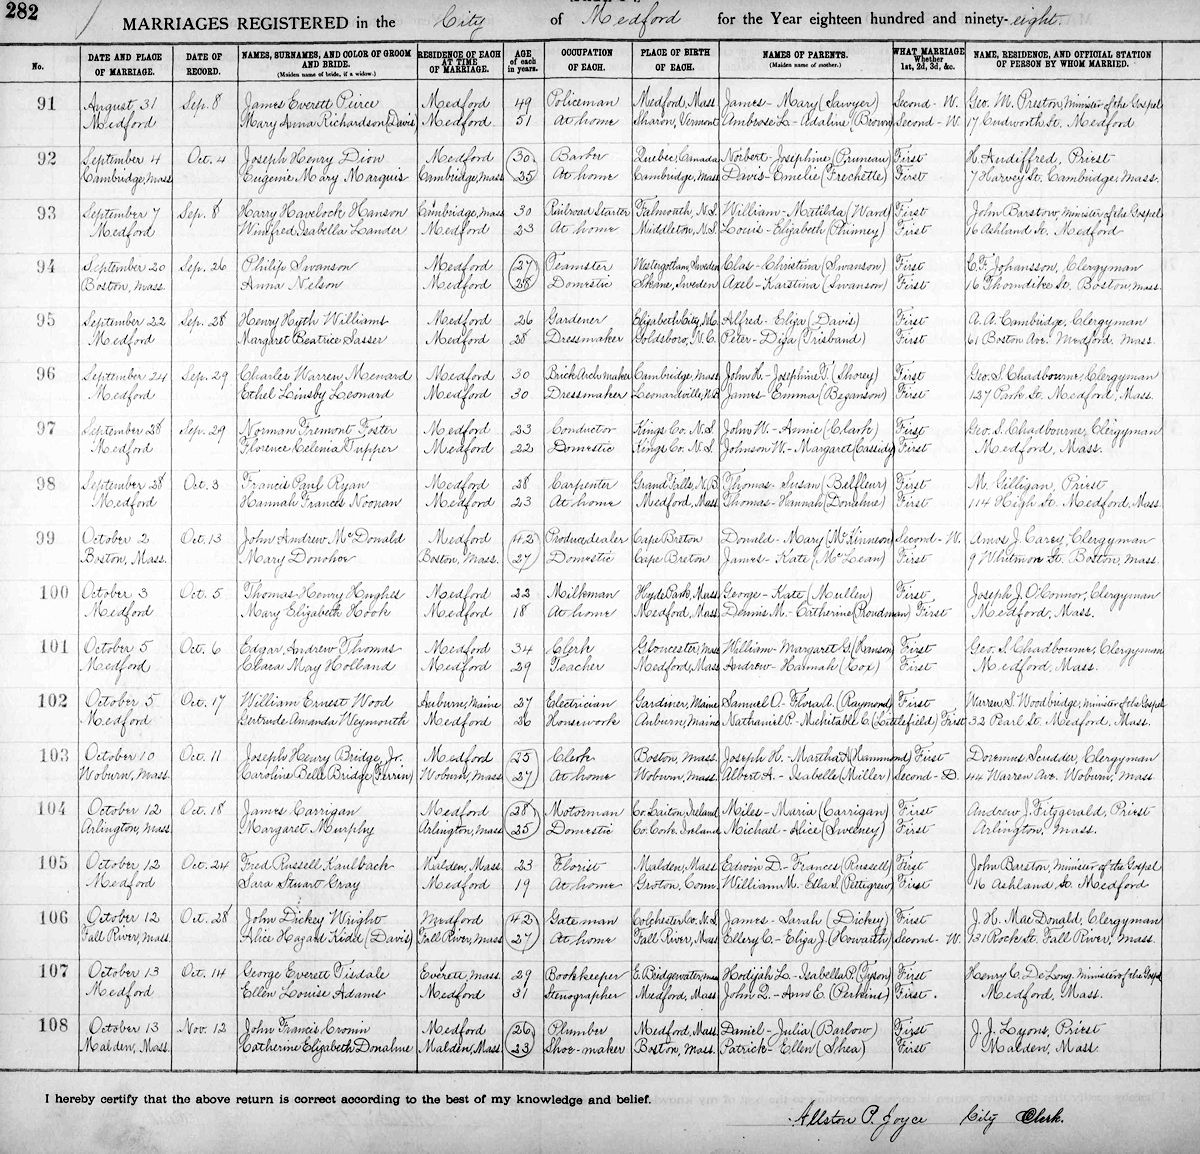 282
MARRIAGES REGISTERED in the City of Medford for the Year eighteen hundred and ninety-eight.
No. DATE AND PLACE OF MARRIAGE. DATE OF RECORD. NAMES, SURNAMES, AND COLOR OF GROOM AND BRIDE. (Maiden name of bride, if a widow.) RESIDENCE OF EACH AT TIME OF MARRIAGE. AGE of each in years. OCCUPATION OF EACH. PLACE OF BIRTH OF EACH. NAMES OF PARENTS. (Maiden name of mother.) WHAT MARRIAGE Whether 1st, 2d, 3d, &c. NAME, RESIDENCE, AND OFFICIAL STATION OF PERSON BY WHOM MARRIED.
91 August, 31 Sep. 8 James Everett Peirce Medford 49 Policeman Medford, Mass. James - Mary (Sawyer) Second - W. Geo. M. Preston, Minister of the Gospel
Medford Mary Anna Richardson (Davis) Medford 51 At home Sharon, Vermont Ambrose L. - Adaline (Brown) Second - W. 17 Cudworth St. Medford
92 September 4 Oct. 4 Joseph Henry Dion Medford 30 Barber Quebec, Canada Norbert - Josephine (Pruneau) First H. Audiffred, Priest
Cambridge, Mass. Eugenie Mary Marquis Cambridge, Mass. 25 At home Cambridge, Mass. Davis - Emelie (Frechette) First 7 Harvey St. Cambridge, Mass.
93 September 7 Sep. 8 Harry Havelock Hanson Cambridge, Mass. 30 Railroad Starter Falmouth, N.S. William - Matilda (Ward) First John Barstow, Minister of the Gospel
Medford Winifred Isabella Lander Medford 23 At home Middleton, N.S. Louis - Elizabeth (Phinney) First 16 Ashland St. Medford
94 September 20 Sep. 26 Philip Swanson Medford 27 Teamster Westergothem, Sweden Clas - Christina (Swanson) First C. F. Johansson, Clergyman
Boston, Mass. Anna Nelson Medford 28 Domestic Skane, Sweden Axel - Karstina (Swanson) First 16 Thorndike St. Boston, Mass.
95 September 22 Sep. 28 Henry Hyth Williams Medford 26 Gardener Elizabeth City, N.C. Alfred - Eliza (Davis) First A. A. Cambridge, Clergyman
Medford Margaret Beatrice Sasser Medford 28 Dressmaker Goldsboro, N.C. Peter - Diza (Grisband) First 61 Boston Ave. Medford, Mass.
96 September 24 Sep. 29 Charles Warren Menard Medford 30 Brick Arch maker Cambridge, Mass. John H. - Josephine T. (Shorey) First Geo. S. Chadbourne, Clergyman
Medford Ethel Linsby Leonard Medford 30 Dressmaker Leonardville, N.B. James - Emma (Beganson) First 127 Park St. Medford, Mass.
97 September 28 Sep. 29 Norman Fremont Foster Medford 23 Conductor Kings Co. N.S. John W. - Annie (Clark) First Geo. S. Chadbourne, Clergyman
Medford Florence Celenia Tupper Medford 22 Domestic Kings Co. N.S. Johnson W. - Margaret (Cassidy) First Medford, Mass.
98 September 28 Oct. 3 Francis Paul Ryan Medford 28 Carpenter Grand Falls, N.B. Thomas - Susan (Belfleur) First M. Gilligan, Priest
Medford Hannah Frances Noonan Medford 23 At home Medford, Mass. Thomas - Hannah (Donahue) First 114 High St. Medford, Mass.
99 October 2 Oct. 13 John Andrew McDonald Medford 42 Produce dealer Cape Breton Donald - Mary (McKinnon) Second - W. Amos J. Carey, Clergyman
Boston, Mass. Mary Donohoe Boston, Mass. 27 Domestic Cape Breton James - Kate (McLean) First 9 Whitmon St. Boston, Mass.
100 October 3 Oct. 5 Thomas Henry Hughes Medford 22 Milkman Hyde Park, Mass. George - Kate (Mullen) First Joseph J. O'Connor, Clergyman
Medford Mary Elizabeth Hook Medford 18 At home Medford, Mass. Dennis M. - Catherine (Roudman) First Medford, Mass.
101 October 5 Oct. 6 Edgar Andrew Thomas Medford 34 Clerk Gloucester, Mass William - Margaret G. (Hanson) First Geo. S. Chadbourne, Clergyman
Medford Clara May Holland Medford 29 Teacher Medford, Mass. Andrew - Hannah (Cox) First Medford, Mass.
102 October 5 Oct. 17 William Ernest Wood Auburn, Maine 27 Electrician Gardiner, Maine Samuel O. - Flora A. (Raymond) First Warren S. Woodbridge, Minister of the Gospel
Medford Gertrude Amanda Weymouth Medford 26 Housework Auburn, Maine Nathaniel P. - Mehitable C. (Littlefield) First 32 Pearl St. Medford, Mass.
103 October 10 Oct. 11 Joseph Henry Bridge, Jr. Medford 25 Clerk Boston, Mass. Joseph H. - Martha A. (Hammond) First Doremus Scudder, Clergyman
Woburn, Mass. Caroline Belle Bridge (Perrin) Woburn, Mass. 27 At home Woburn, Mass. Albert A. - Isabelle (Miller) Second - D. 44 Warren Ave. Woburn, Mass.
104 October 12 Oct. 18 James Carrigan Medford 28 Motorman Co. Laiton, Ireland Miles - Maria (Carrigan) First Andrew J. Fitzgerald, Priest
Arlington, Mass. Margaret Murphy Arlington, Mass. 25 Domestic Co. Cork, Ireland Michael - Alice (Sweeney) First Arlington, Mass.
105 October 12 Oct. 24 Fred Russell Kaulback Malden, Mass. 23 Florist Malden, Mass. Edwin D. - Frances (Russell) First John Barstow, Minister of the Gospel
Medford Sara Stuart Gray Medford 19 At home Groton, Conn. William M. - Ella S. (Pettigrew) First 16 Ashland St. Medford
106 October 12 Oct. 28 John Dickey Wright Medford 42 Gateman Colchester Co. N.S. James - Sarah (Dickey) First J. H. MacDonald, Clergyman
Fall River, Mass. Alice Hazard Kidd (Davis) Fall River, Mass. 27 At home Fall River, Mass Ellery C. - Eliza J. (Howarth) Second - W. 131 Rock St. Fall River, Mass.
107 October 13 Oct. 14 George Everett Tisdale Everett, Mass. 29 Bookkeeper E. Bridgewater, Mass Hodijah L. - Isabella P. (Tyson) First Henry C. DeLong, Minister of the Gospel
Medford Ellen Louise Adams Medford 31 Stenographer Medford, Mass John Q. - Ann E. (Perkins) First. Medford, Mass.
108 October 13 Nov. 12 John Francis Cronin Medford 26 Plumber Medford, Mass. Daniel - Julia (Barlow) First J. J. Lyons, Priest
Malden, Mass. Catherine Elizabeth Donahue Malden, Mass. 23 Shoe-maker Boston, Mass. Patrick - Ellen (Shea) First Malden, Mass.
I hereby certify that the above return is correct according to the best of my knowledge and belief.
Allston P. Joyce City Clerk.